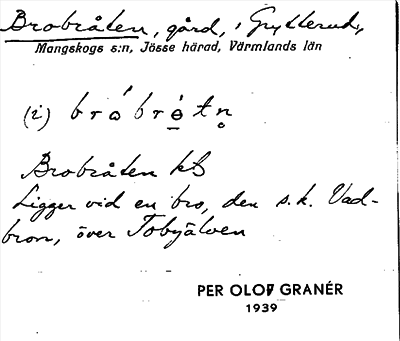 Brobråten, gård, i Grytterud,
Mangskogs s:n, Jösse härad, Värmlands län
(i) brɷ́brɵ̲́tn̥
Brobråten kB
Ligger vid en bro, den s.k. Vad-
bron, över Tobyälven
PER OLOF GRANÉR
1939